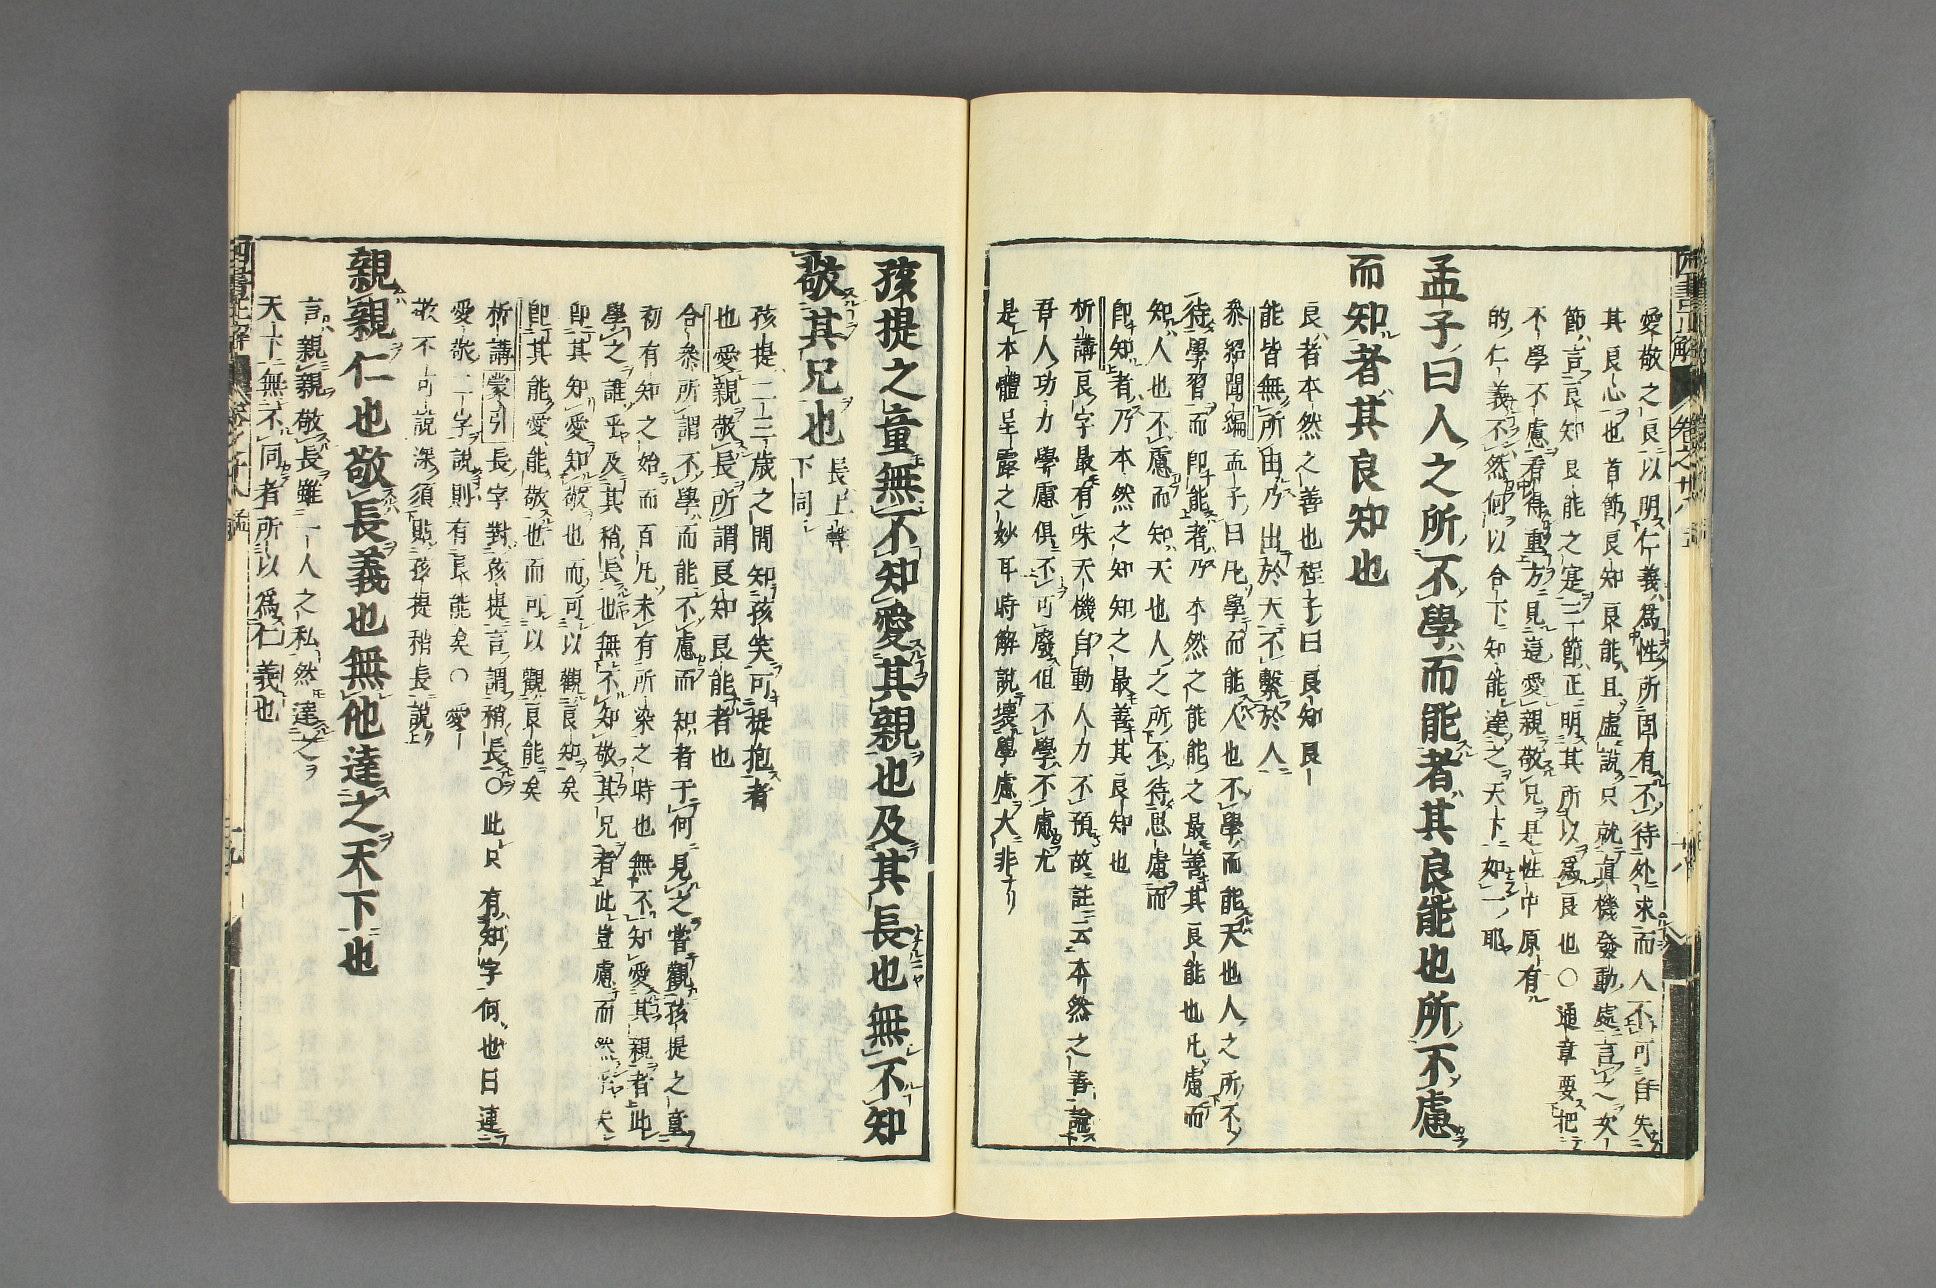 愛敬之良以明仁義爲性所固有不待外求而人不可自失
其良心也首節良知良能且虛說只就眞機發動處言之次
節言良知良能之寔三節正明其所以爲良也〇通章要把
不學不慮看得重方見這愛親敬兄是性中原有
的仁義不然何以合下知能達之天下如一耶
孟子曰人之所不學而能者其良能也所不慮
而知者其良知也
良者本然之善也程子曰良知良
能皆無所由乃出於天不繫於人
參紹聞編孟子曰凡學而能人也不學而能天也人之所不
待學習而卽能者乃本然之能能之最善其良能也凡慮而
知人也不慮而知天也人之所不待思慮而
卽知者乃本然之知知之最善其良知也
析講良字最有味天機自動人力不預故註云本然之善論
吾人功力學慮俱不可廢但不學不慮尤
是本體呈露之妙耳時解說壞學慮大非
孩提之童無不知愛其親也及其長也無不知
敬其兄也
長上聲
下同
孩提二三歲之間知孩笑可提抱者
也愛親敬長所謂良知良能者也
合參所謂不學而能不慮而知者于何見之嘗觀孩提之童
初有知之始而百凡未有所染之時也無不知愛其親者此
學之誰乎及其稍長也無不知敬其兄者此豈慮而然乎夫
卽其知愛知敬也而可以觀良知矣
卽其能愛能敬也而可以觀良能矣
析講蒙引長字對孩提言謂稍長〇此只有知字何也曰連
愛敬二字說則有良能矣〇愛
敬不可說深須貼孩提稍長說
親親仁也敬長義也無他達之天下也
言親親敬長雖一人之私然達之
天下無不同者所以爲仁義也